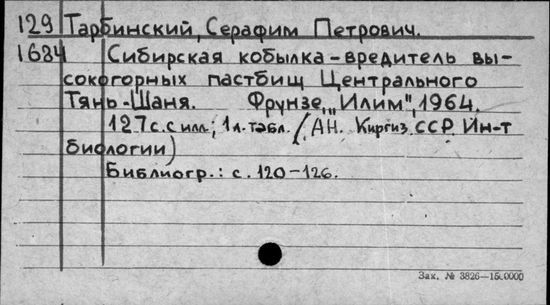 129 Тарбинский, Серафим Петрович.
1684 Сибирская кобылка-вредитель вы-
сокогорных пастбищ Центрального
Тянь-Шаня. Фрунзе, "Илим", 1964.
127с. с илл; 1л. табл. (АН. Киргиз. ССР. Ин-т
биологии)
Библиогр.: с. 120-126.
Зак. № 3826—1500000